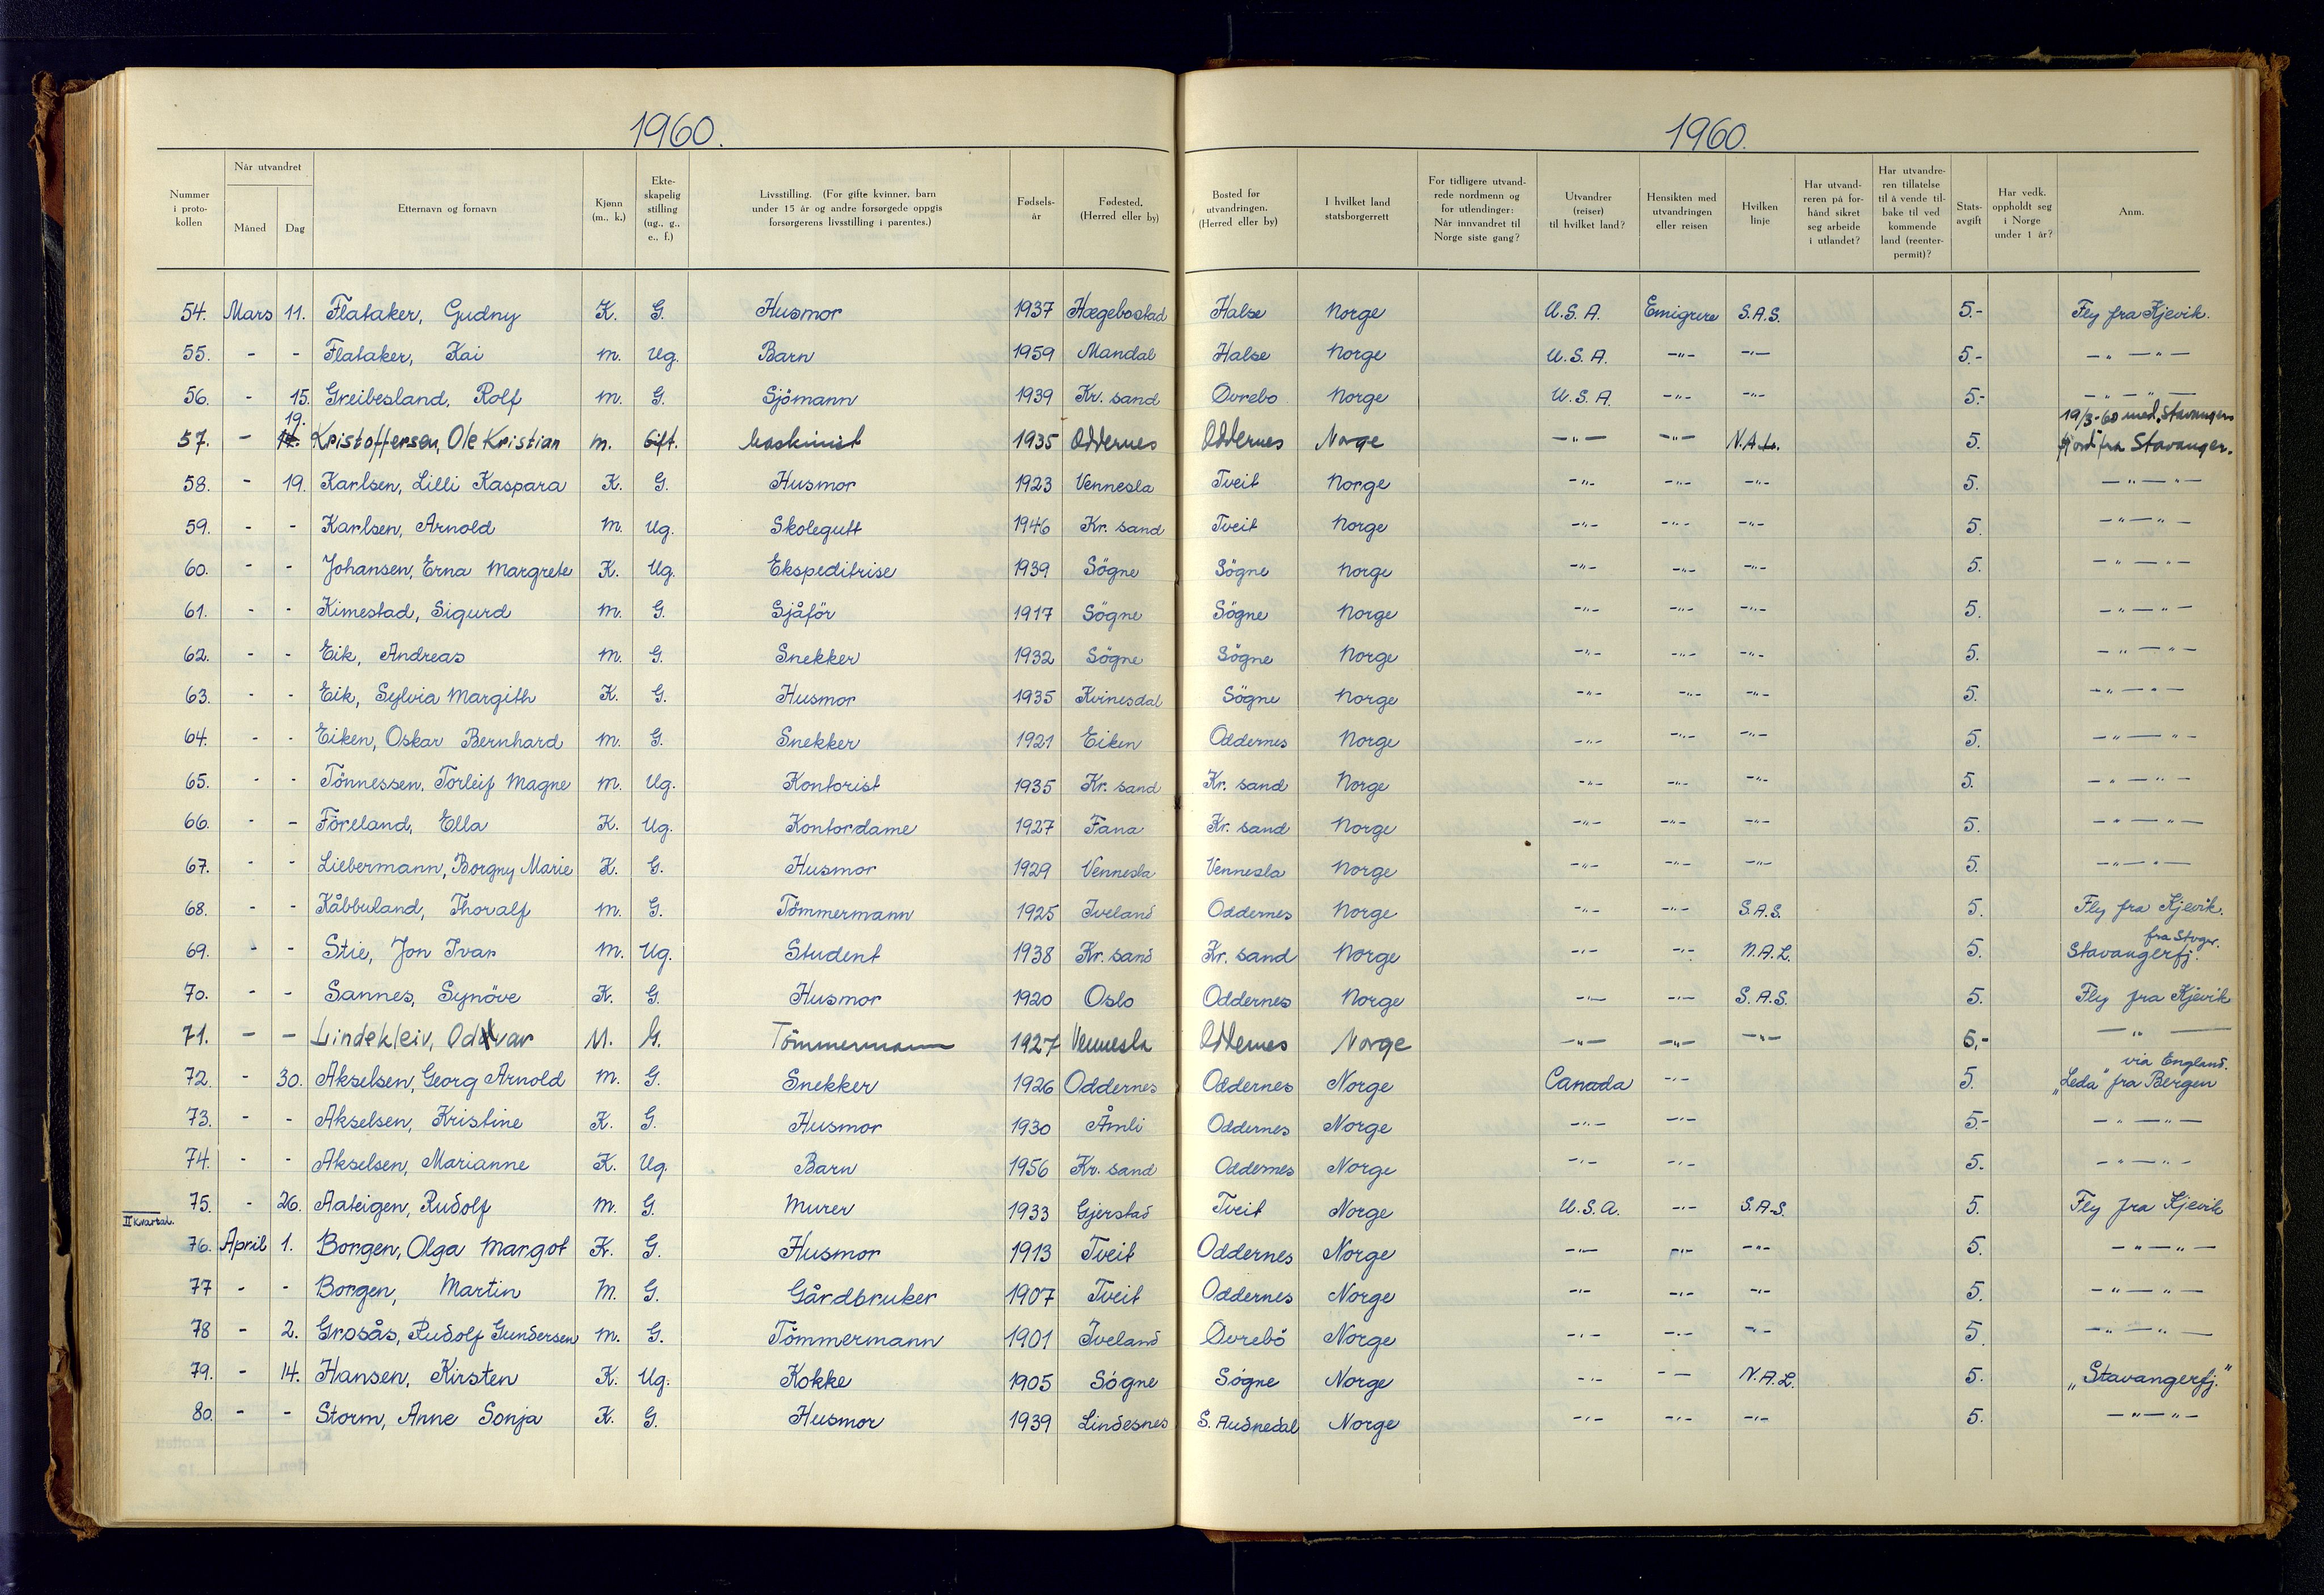 1960.
1960.
Nummer i proto-kollen | Når utvandret Måned | Dag | Etternavn og fornavn | Kjønn (m., k.) | Ekte-skapelig stilling (ug., g., e., f.) | Livsstilling. (For gifte kvinner, barn under 15 år og andre forsørgede oppgis forsørgerens livsstilling i parentes.) | Fødsels-år | Fødested. (Herred eller by) | Bosted før utvandringen. (Herred eller by) | I hvilket land statsborgerrett | For tidligere utvand-rede nordmenn og for utlendinger: Når innvandret til Norge siste gang? | Utvandrer (reiser) til hvilket land? | Hensikten med utvandringen eller reisen | Hvilken linje | Har utvand-reren på for-hånd sikret seg arbeide i utlandet? | Har utvandre-ren tillatelse til å vende til-bake til ved kommende land (reenter-permit)? | Stats-avgift | Har vedk. oppholdt seg i Norge under 1 år? | Anm.
54. Mars 11. Flataker, Gudny K. G. Husmor 1937 Hægebostad Halse Norge U.S.A. Emigrere S.A.S. 5.- Fly fra Kjevik.
55. - - Flataker, Kai m. Ug. Barn 1959 Mandal Halse Norge U.S.A. -"- -"- 5.- -"- -"-
56. - 15. Greibesland, Rolf m. G. Sjömann 1939 Kr. sand Øvrebo Norge U.S.A. -"- -"- 5.- -"- -"-
57. - 19. Kristoffersen, Ole Kristian m. Gift. Maskinist 1935 Oddernes Oddernes Norge -"- -"- N.A.L. 5. 19/3-60 med „Stavanger
fjord" fra Stavanger.
58. - 19. Karlsen, Lilli Kaspara K. G. Husmor 1923 Vennesla Tveit Norge -"- -"- -"- 5. -"- -"-
59. - - Karlsen, Arnold m. Ug. Skolegutt 1946 Kr. sand Tveit Norge -"- -"- -"- 5. -"- -"-
60. - - Johansen, Erna Margrete K. Ug. Ekspeditrise 1939 Sögne Sögne Norge -"- -"- -"- 5. -"- -"-
61. - - Kimestad, Sigurd m. G. Sjåför 1917 Sögne Sögne Norge -"- -"- -"- 5. -"- -"-
62. - - Eik, Andreas m. G. Snekker 1932 Sögne Sögne Norge -"- -"- -"- 5. -"- -"-
63. - - Eik, Sylvia Margith K. G. Husmor 1935 Kvinesdal Sögne Norge -"- -"- -"- 5. -"- -"-
64. - - Eiken, Oskar Bernhard m. G. Snekker 1921 Eiken Oddernes Norge -"- -"- -"- 5. -"- -"-
65. - - Tönnessen, Torleif Magne m. Ug. Kontorist 1935 Kr. sand Kr. sand Norge -"- -"- -"- 5. -"- -"-
66. - - Föreland, Ella K. Ug. Kontordame 1927 Fana Kr. sand Norge -"- -"- -"- 5. -"- -"-
67. - - Liebermann, Borgny Marie K. G. Husmor 1929 Vennesla Vennesla Norge -"- -"- -"- 5. -"- -"-
68. - - Kåbbuland, Thoralf m. G. Tömmermann 1925 Iveland Oddernes Norge -"- -"- S.A.S. 5. Fly fra Kjevik.
69. - - Stie, Jon Ivar m. Ug. Student 1938 Kr. sand Kr. sand Norge -"- -"- N.A.L. 5. Stavangerfj. fra Stvgr.
70. - - Sannes, Synöve K. G. Husmor 1920 Oslo Oddernes Norge -"- -"- S.A.S. 5. Fly fra Kjevik
71. - - Lindekleiv, Oddvar M. G. Tömmermann 1927 Vennesla Oddernes Norge -"- -"- -"- 5,- -"-
72. - 30. Akselsen, Georg Arnold m. G. Snekker 1926 Oddernes Oddernes Norge Canada -"- 5. „Leda" fra Bergen via England.
73. - - Akselsen, Kristine K. G. Husmor 1930 Åmli Oddernes Norge -"- -"- 5.- -"- -"-
74. - - Akselsen, Marianne K. Ug. Barn 1956 Kr. sand Oddernes Norge -"- -"- 5. -"- -"-
75. - 26. Aateigen, Rudolf m. G. Murer 1933 Gjerstad Tveit Norge U.S.A. -"- S.A.S. 5. Fly fra Kjevik
II kvartal.
76. April 1. Borgen, Olga Margot K. G. Husmor 1913 Tveit Oddernes Norge -"- -"- -"- 5. -"- -"-
77 - - Borgen, Martin M. G. Gårdbruker 1907 Tveit Oddernes Norge -"- -"- -"- 5. -"- -"-
78 - 2. Grosås, Rudolf Gundersen m. G. Tömmermann 1901 Iveland Øvrebö Norge -"- -"- -"- 5. -"- -"-
79. - 14. Hansen, Kirsten K. Ug. Kokke 1905 Sögne Sögne Norge -"- - - N.A.L. 5. „Stavangerfj."
80. - - Storm, Anne Sonja K. G. Husmor 1939 Lindesnes S. Audnedal Norge -"- -"- -"- 5. -"- -"-